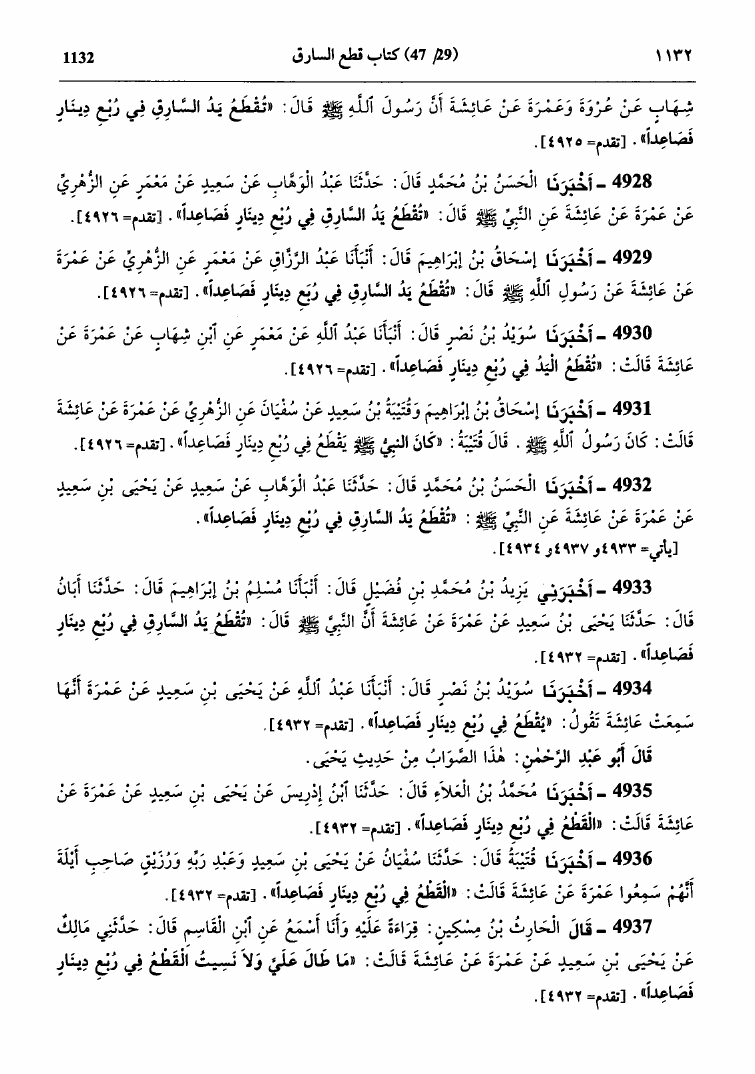 ١١٣٢ (29/ 47) كتاب قطع السارق 1132
شِهَابٍ عَنْ عُرْوَةَ وَعَمْرَةَ عَنْ عَائِشَةَ أَنَّ رَسُولَ ٱللَّهِ ﷺ قَالَ: «تُقْطَعُ يَدُ السَّارِقِ فِي رُبْعِ دِينَارٍ
فَصَاعِداً». [تقدم= ٤٩٢٥].
4928 ـ أَخْبَرَنَا الْحَسَنُ بْنُ مُحَمَّدٍ قَالَ: حَدَّثَنَا عَبْدُ الْوَهَّابِ عَنْ سَعِيدٍ عَنْ مَعْمَرٍ عَنِ الزُّهْرِيِّ
عَنْ عَمْرَةَ عَنْ عَائِشَةَ عَنِ النَّبِيِّ ﷺ قَالَ: «تُقْطَعُ يَدُ السَّارِقِ فِي رُبْعِ دِينَارٍ فَصَاعِداً». [تقدم= ٤٩٢٦].
4929 ـ أَخْبَرَنَا إِسْحَاقُ بْنُ إِبْرَاهِيمَ قَالَ: أَنْبَأَنَا عَبْدُ الرَّزَّاقِ عَنْ مَعْمَرٍ عَنِ الزُّهْرِيِّ عَنْ عَمْرَةَ
عَنْ عَائِشَةَ عَنْ رَسُولِ ٱللَّهِ ﷺ قَالَ: «تُقْطَعُ يَدُ السَّارِقِ فِي رُبْعِ دِينَارٍ فَصَاعِداً». [تقدم= ٤٩٢٦].
4930 ـ أَخْبَرَنَا سُوَيْدُ بْنُ نَصْرٍ قَالَ: أَنْبَأَنَا عَبْدُ ٱللَّهِ عَنْ مَعْمَرٍ عَنِ ٱبْنِ شِهَابٍ عَنْ عَمْرَةَ عَنْ
عَائِشَةَ قَالَتْ: «تُقْطَعُ الْيَدُ فِي رُبْعِ دِينَارٍ فَصَاعِداً». [تقدم= ٤٩٢٦].
4931 ـ أَخْبَرَنَا إِسْحَاقُ بْنُ إِبْرَاهِيمَ وَقُتَيْبَةُ بْنُ سَعِيدٍ عَنْ سُفْيَانَ عَنِ الزُّهْرِيِّ عَنْ عَمْرَةَ عَنْ عَائِشَةَ
قَالَتْ: كَانَ رَسُولُ ٱللَّهِ ﷺ. قَالَ قُتَيْبَةُ: «كَانَ النبيُّ ﷺ يَقْطَعُ فِي رُبْعِ دِينَارٍ فَصَاعِداً». [تقدم= ٤٩٢٦].
4932 ـ أَخْبَرَنَا الْحَسَنُ بْنُ مُحَمَّدٍ قَالَ: حَدَّثَنَا عَبْدُ الْوَهَّابِ عَنْ سَعِيدٍ عَنْ يَحْيَى بْنِ سَعِيدٍ
عَنْ عَمْرَةَ عَنْ عَائِشَةَ عَنِ النَّبِيِّ ﷺ: «تُقْطَعُ يَدُ السَّارِقِ فِي رُبْعِ دِينَارٍ فَصَاعِداً».
[يأتي= ٤٩٣٣و ٤٩٣٧و ٤٩٣٤].
4933 ـ أَخْبَرَنِي يَزِيدُ بْنُ مُحَمَّدِ بْنِ فُضَيْلٍ قَالَ: أَنْبَأَنَا مُسْلِمُ بْنُ إِبْرَاهِيمَ قَالَ: حَدَّثَنَا أَبَانُ
قَالَ: حَدَّثَنَا يَحْيَى بْنُ سَعِيدٍ عَنْ عَمْرَةَ عَنْ عَائِشَةَ أَنَّ النَّبِيَّ ﷺ قَالَ: «تُقْطَعُ يَدُ السَّارِقِ فِي رُبْعِ دِينَارٍ
فَصَاعِداً». [تقدم= ٤٩٣٢].
4934 ـ أَخْبَرَنَا سُوَيْدُ بْنُ نَصْرٍ قَالَ: أَنْبَأَنَا عَبْدُ ٱللَّهِ عَنْ يَحْيَى بْنِ سَعِيدٍ عَنْ عَمْرَةَ أَنَّهَا
سَمِعَتْ عَائِشَةَ تَقُولُ: «يُقْطَعُ فِي رُبْعِ دِينَارٍ فَصَاعِداً». [تقدم= ٤٩٣٢].
قَالَ أَبُو عَبْدِ الرَّحْمٰنِ: هٰذَا الصَّوَابُ مِنْ حَدِيثِ يَحْيَى.
4935 ـ أَخْبَرَنَا مُحَمَّدُ بْنُ الْعَلاَءِ قَالَ: حَدَّثَنَا ٱبْنُ إِدْرِيسَ عَنْ يَحْيَى بْنِ سَعِيدٍ عَنْ عَمْرَةَ عَنْ
عَائِشَةَ قَالَتْ: «الْقَطْعُ فِي رُبْعِ دِينَارٍ فَصَاعِداً». [تقدم= ٤٩٣٢].
4936 ـ أَخْبَرَنَا قُتَيْبَةُ قَالَ: حَدَّثَنَا سُفْيَانُ عَنْ يَحْيَى بْنِ سَعِيدٍ وَعَبْدِ رَبِّهِ وَرُزَيْقٍ صَاحِبِ أَيْلَةَ
أَنَّهُمْ سَمِعُوا عَمْرَةَ عَنْ عَائِشَةَ قَالَتْ: «الْقَطْعُ فِي رُبْعِ دِينَارٍ فَصَاعِداً». [تقدم= ٤٩٣٢].
4937 ـ قَالَ الْحَارِثُ بْنُ مِسْكِينٍ: قِرَاءَةً عَلَيْهِ وَأَنَا أَسْمَعُ عَنِ ٱبْنِ الْقَاسِمِ قَالَ: حَدَّثَنِي مَالِكٌ
عَنْ يَحْيَى بْنِ سَعِيدٍ عَنْ عَمْرَةَ عَنْ عَائِشَةَ قَالَتْ: «مَا طَالَ عَلَيَّ وَلاَ نَسِيتُ الْقَطْعُ فِي رُبْعِ دِينَارٍ
فَصَاعِداً». [تقدم= ٤٩٣٢].